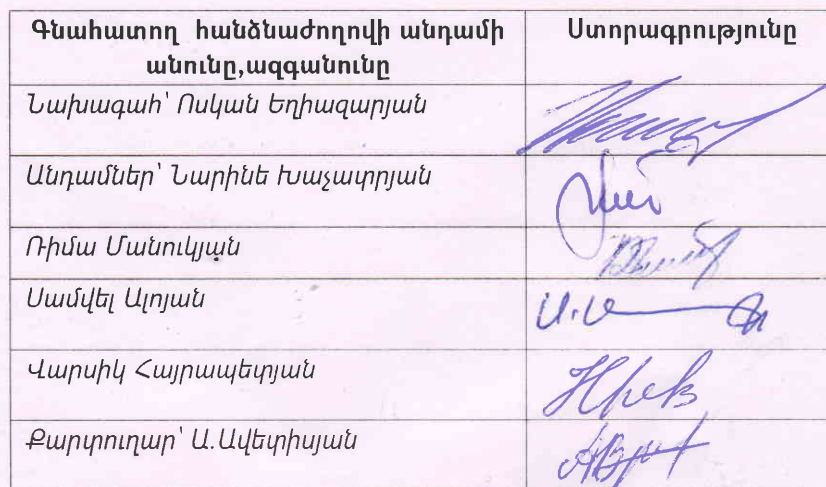 Գնահատող հանձնաժողովի անդամի
անունը,ազգանունը
Ստորագրությունը
Նախագահ՝ Ոսկան Եղիազարյան
Անդամներ՝ Նարինե Խաչատրյան
Ռիմա Մանուկյան
Սամվել Ալոյան
Վարսիկ Հայրապետյան
Քարտուղար՝ Ա.Ավետիսյան